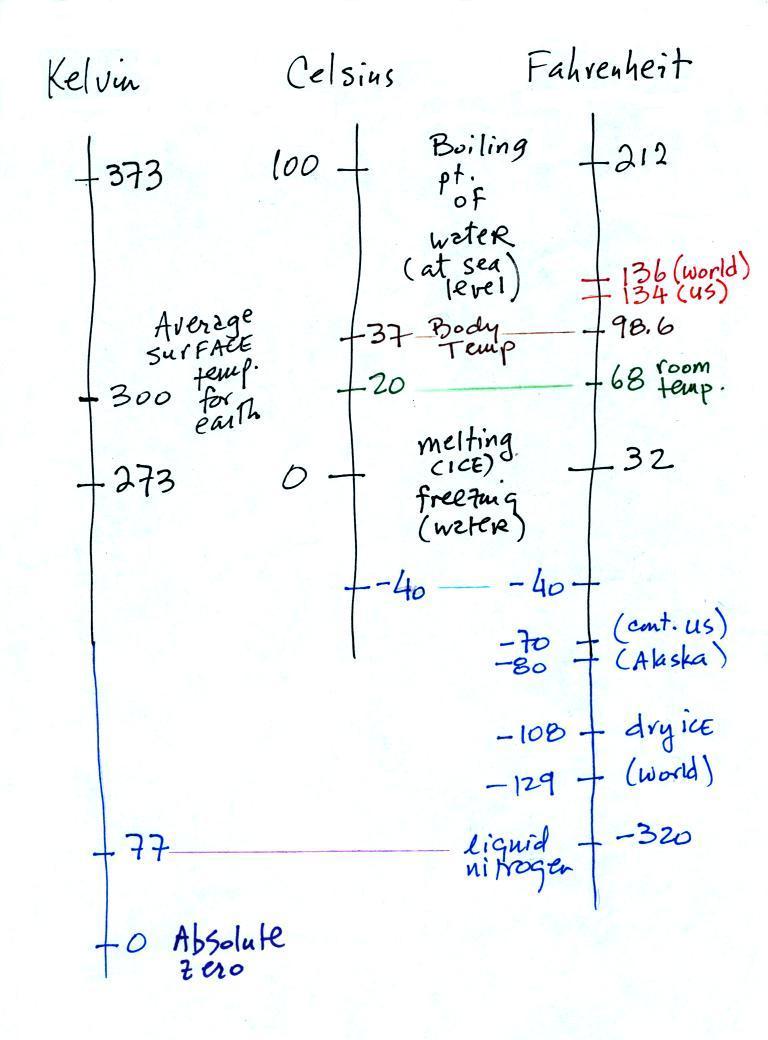 Kelvin
Celsius
Fahrenheit
373
100
Boiling
pt.
of
water
(at sea
level)
212
136 (world)
134 (US)
Average
surface
temp.
for
earth
37
Body
Temp
98.6
300
20
68 room
temp.
273
0
melting
(ICE)
freezing
(water)
32
-40
-40
-70
(cont. US)
-80
(Alaska)
-108
dry ice
-129
(world)
77
liquid
nitrogen
-320
0
Absolute
zero